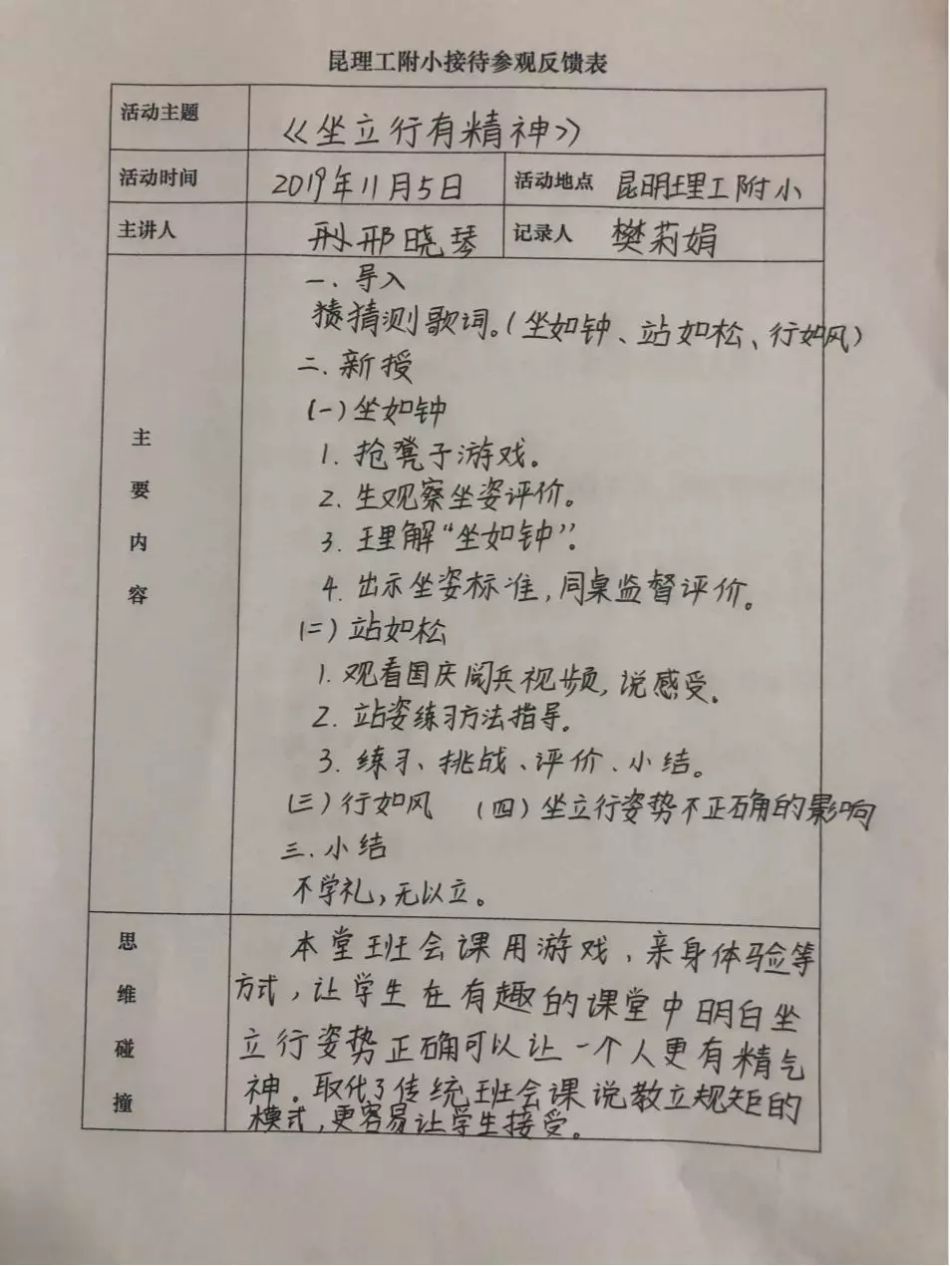 昆理工附小接待参观反馈表
活动主题 《坐立行有精神》
活动时间 2019年11月5日 活动地点 昆明理工附小
主讲人 邢晓琴 记录人 樊莉娟
主要内容
一.导入
猜测歌词。(坐如钟、站如松、行如风)
二.新授
(一)坐如钟
1.抢凳子游戏。
2.生观察坐姿评价。
3.理解“坐如钟”。
4.出示坐姿标准,同桌监督评价。
(二)站如松
1.观看国庆阅兵视频,说感受。
2.站姿练习方法指导。
3.练习、挑战、评价、小结。
(三)行如风 (四)坐立行姿势不正确的影响
三.小结
不学礼,无以立。
思维碰撞
本堂班会课用游戏、亲身体验等
方式,让学生在有趣的课堂中明白坐
立行姿势正确可以让一个人更有精气
神。取代了传统班会课说教立规矩的
模式,更容易让学生接受。